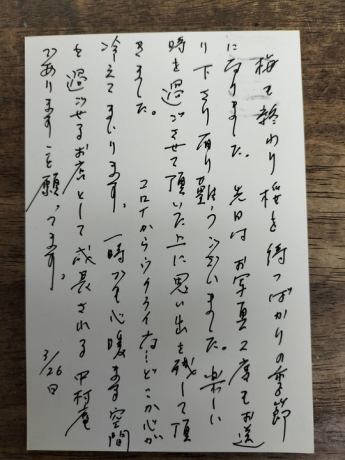 梅も終わり桜を待つばかりの季節
になりました。先日はお写真2度もお送
り下さり有り難うございました。楽しい
時を過ごさせて頂いた上に思い出を残して頂
きました。
コロナからウクライナ…どこか心が
冷えてまいります。一時でも心暖まる空間
を過ごせるお店として成長される中村庵
でありますことを願ってます。
3/26日